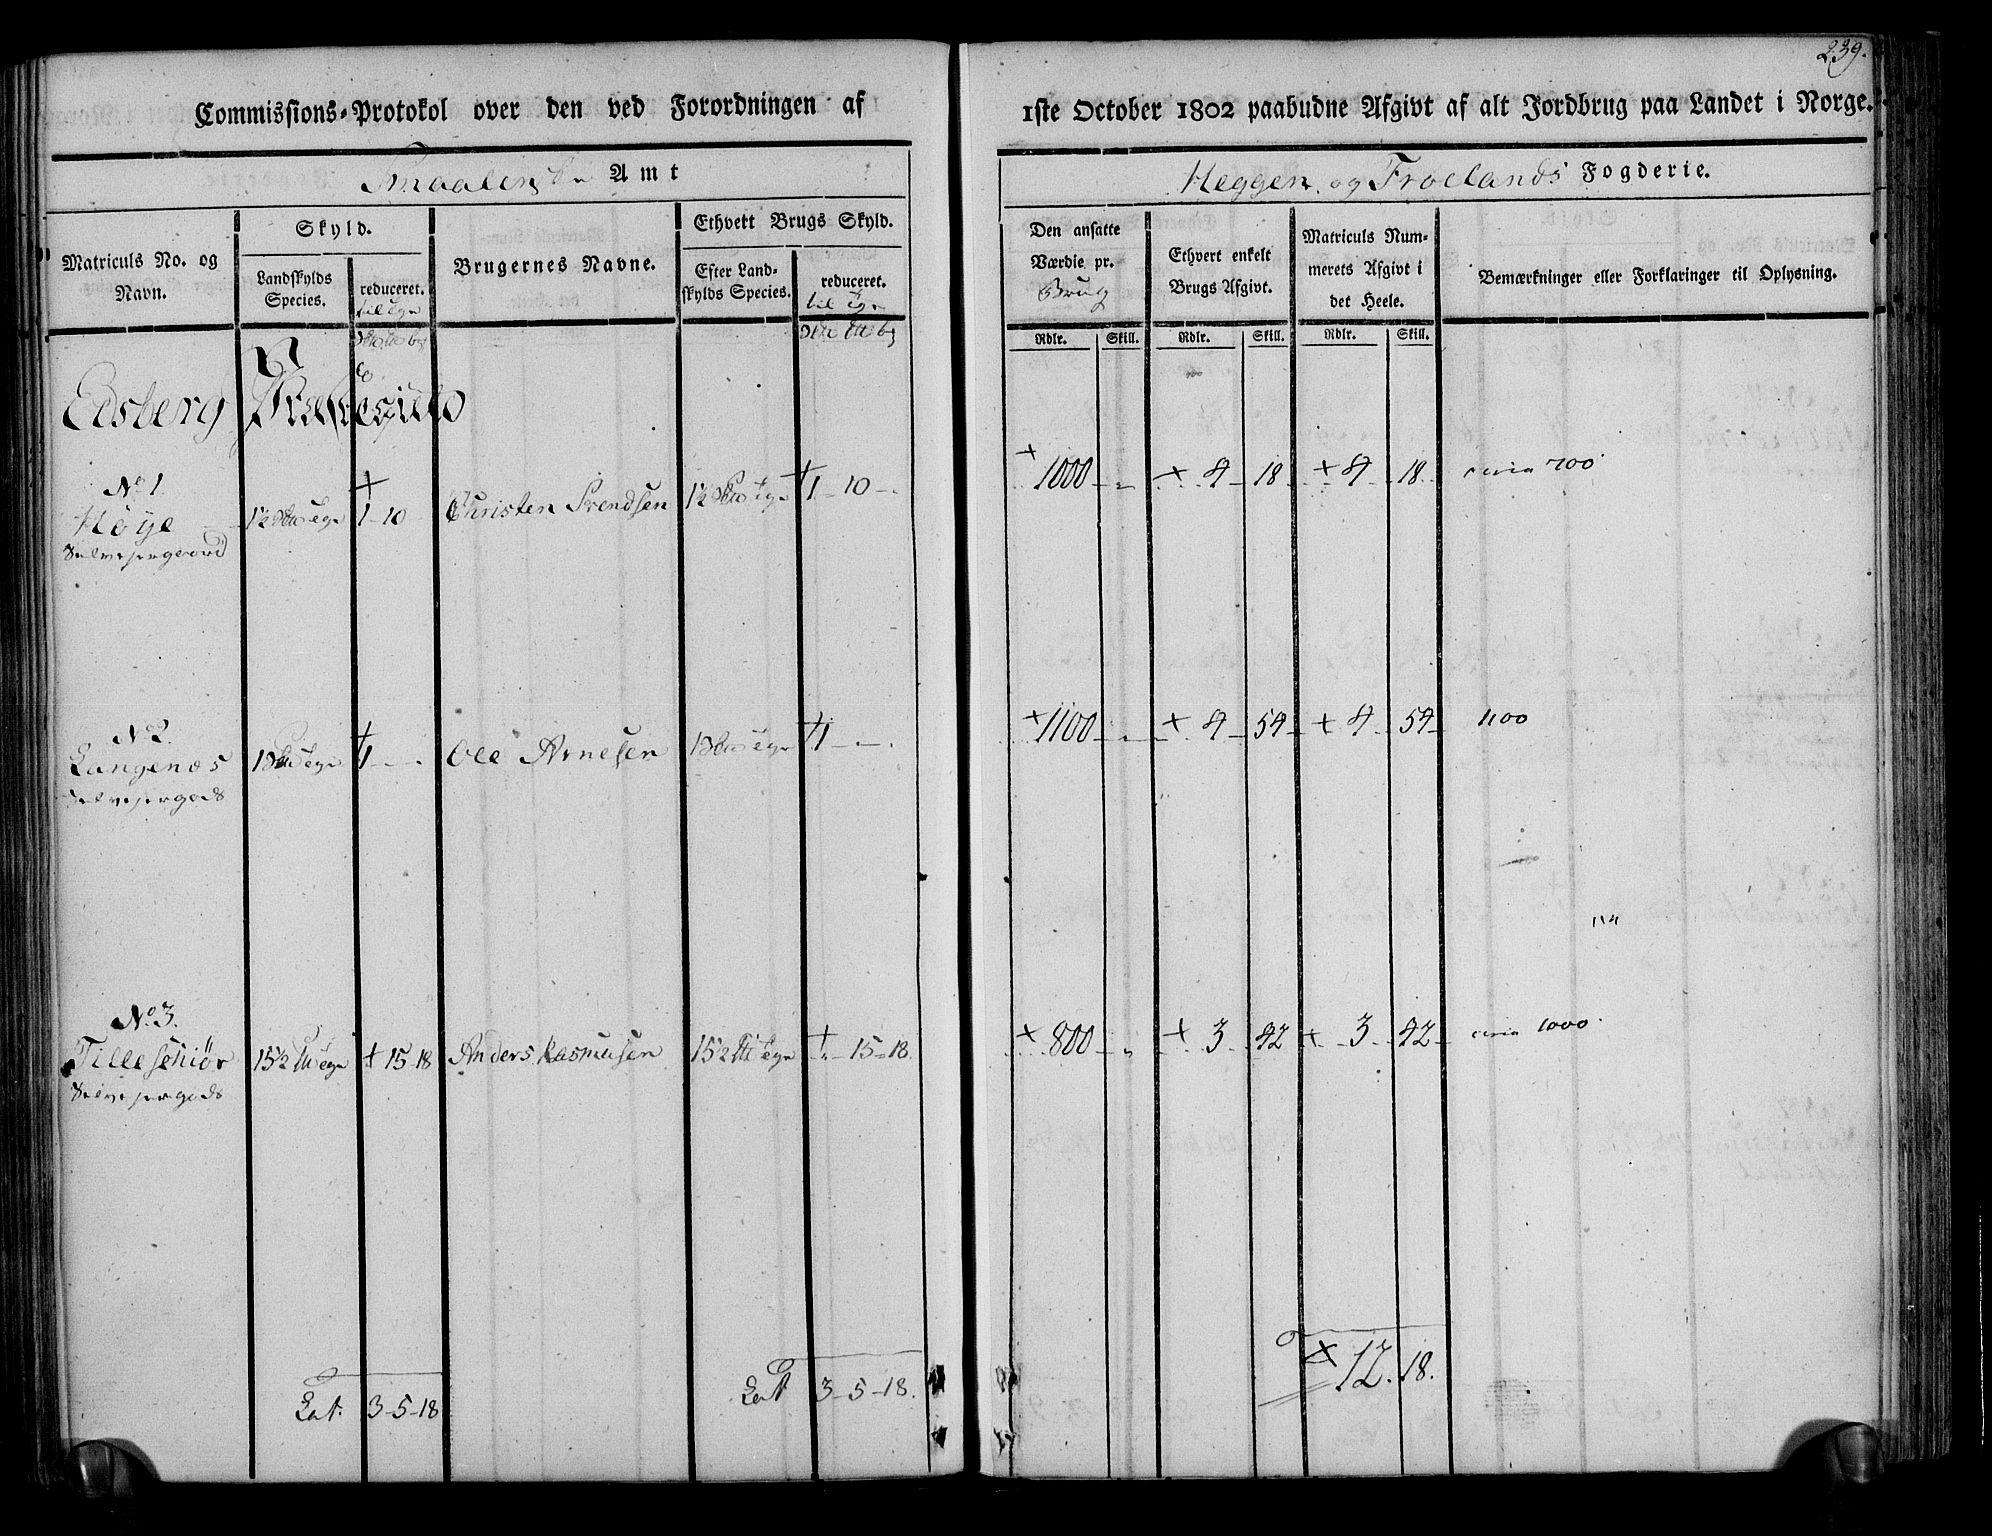 239.
Commissions-Protokol over den ved Forordningen af 1ste October 1802 paabudne Afgivt af alt Jordbrug paa Landet i Norge.
Smaalenske Amt
Heggen og Froelands Fogderie.
Matriculs No. og Navn.
Skyld.
Landskylds Species.
reduceret.
til Egn
Brugernes Navne.
Ethvert Brugs Skyld.
Efter Landskylds Species.
reduceret.
til Egn
Den ansatte Værdie pr.
Brug
Ethvert enkelt Brugs Afgivt.
Matriculs Nummerets Afgivt i det Heele.
Bemærkninger eller Forklaringer til Oplysning.
Rdlr. Skill. Rdlr. Skill. Rdlr. Skill.
Edsberg Præstegield
No 1.
Høye
1-10
Christen Svendsen
1-10-
1000 4 18 4 18 circa 700
No 2.
Langenæs
Selvejergods
1
Ole Arnesen
1
1100 4 54 4 54 1100
No 3.
Tilleschiör
Selvejergods
15-18
Anders Rasmusen
15-18
800 3 42 3 42 circa 1000
Lat. 3-5-18
Lat 3-5-18.
12. 18.